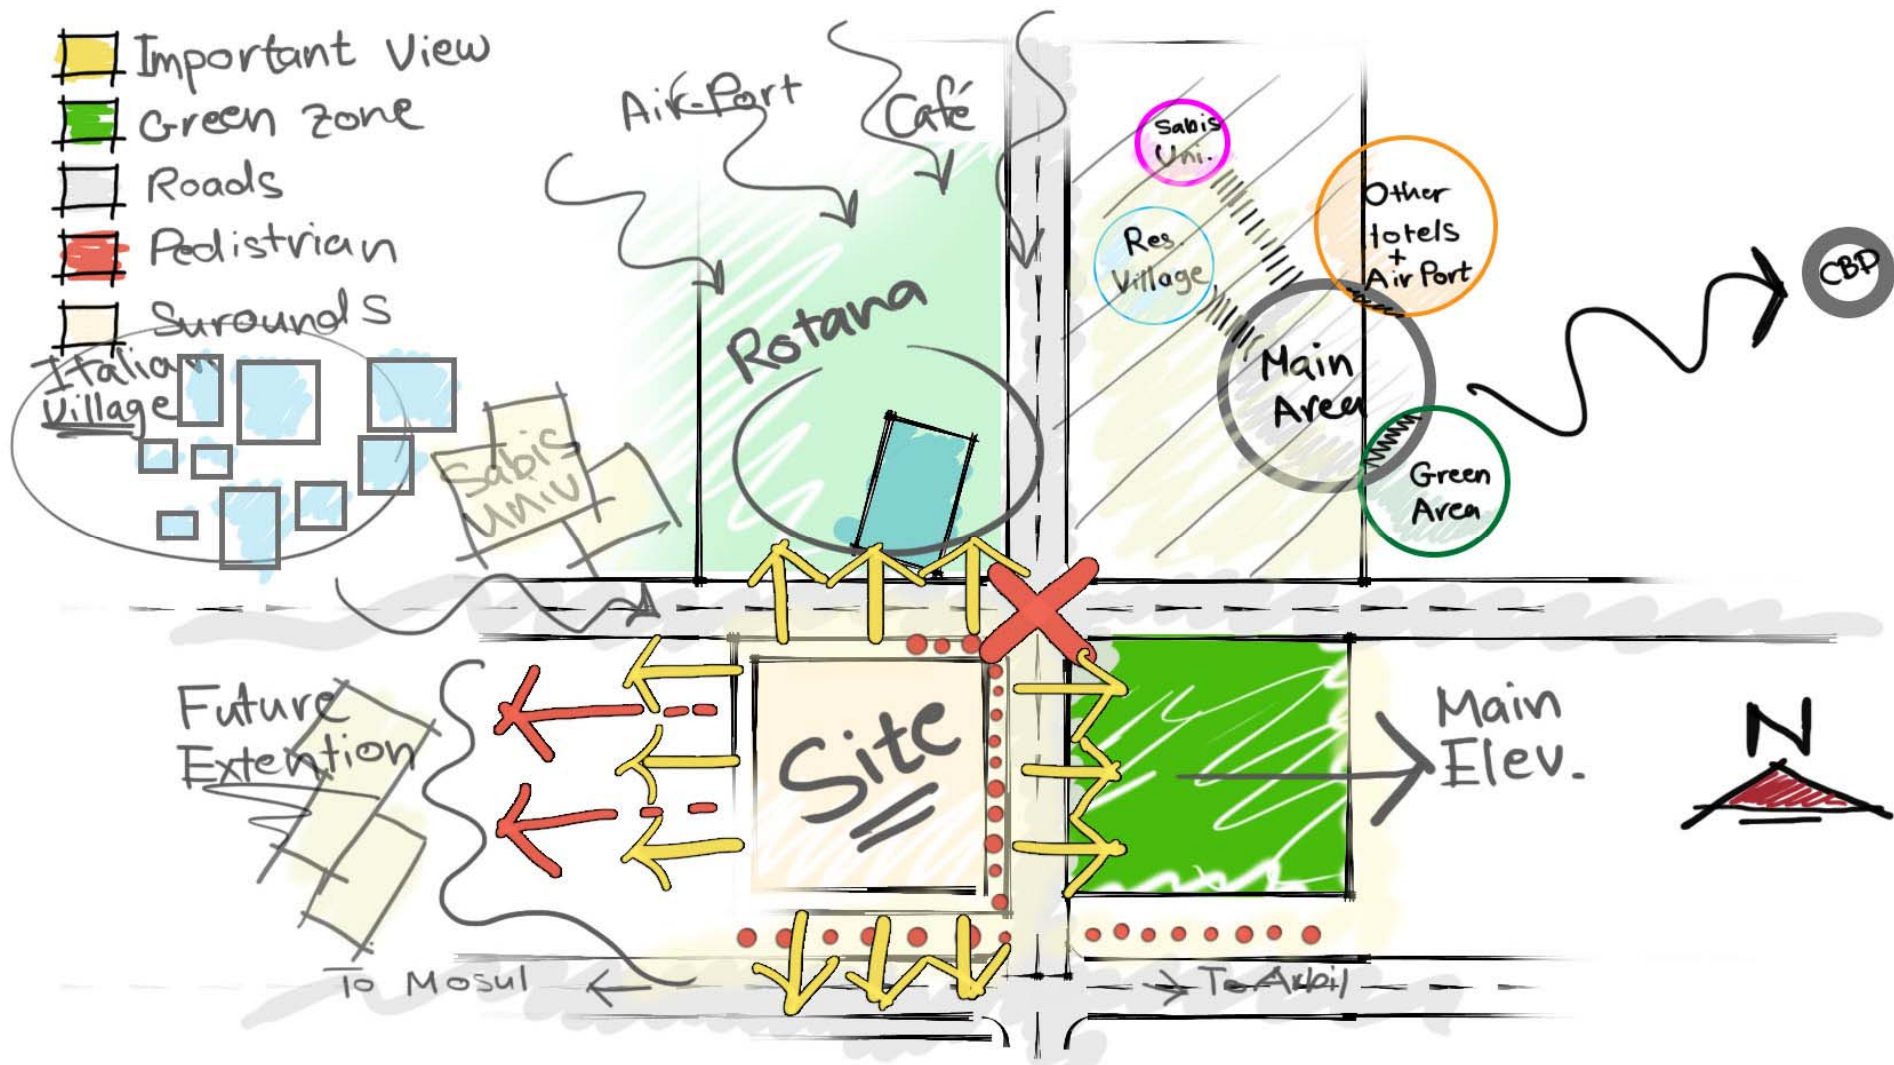 Important View
Green zone
Roads
Pedistrian
Surounds
Italian
Village
Sabis
Univ
Air-Port
Café
Rotana
Sabis
Uni.
Res.
Village
Other
Hotels
+
Air Port
Main
Area
Green
Area
CBD
Future
Extention
Site
Main
Elev.
N
To Mosul
To Arbil